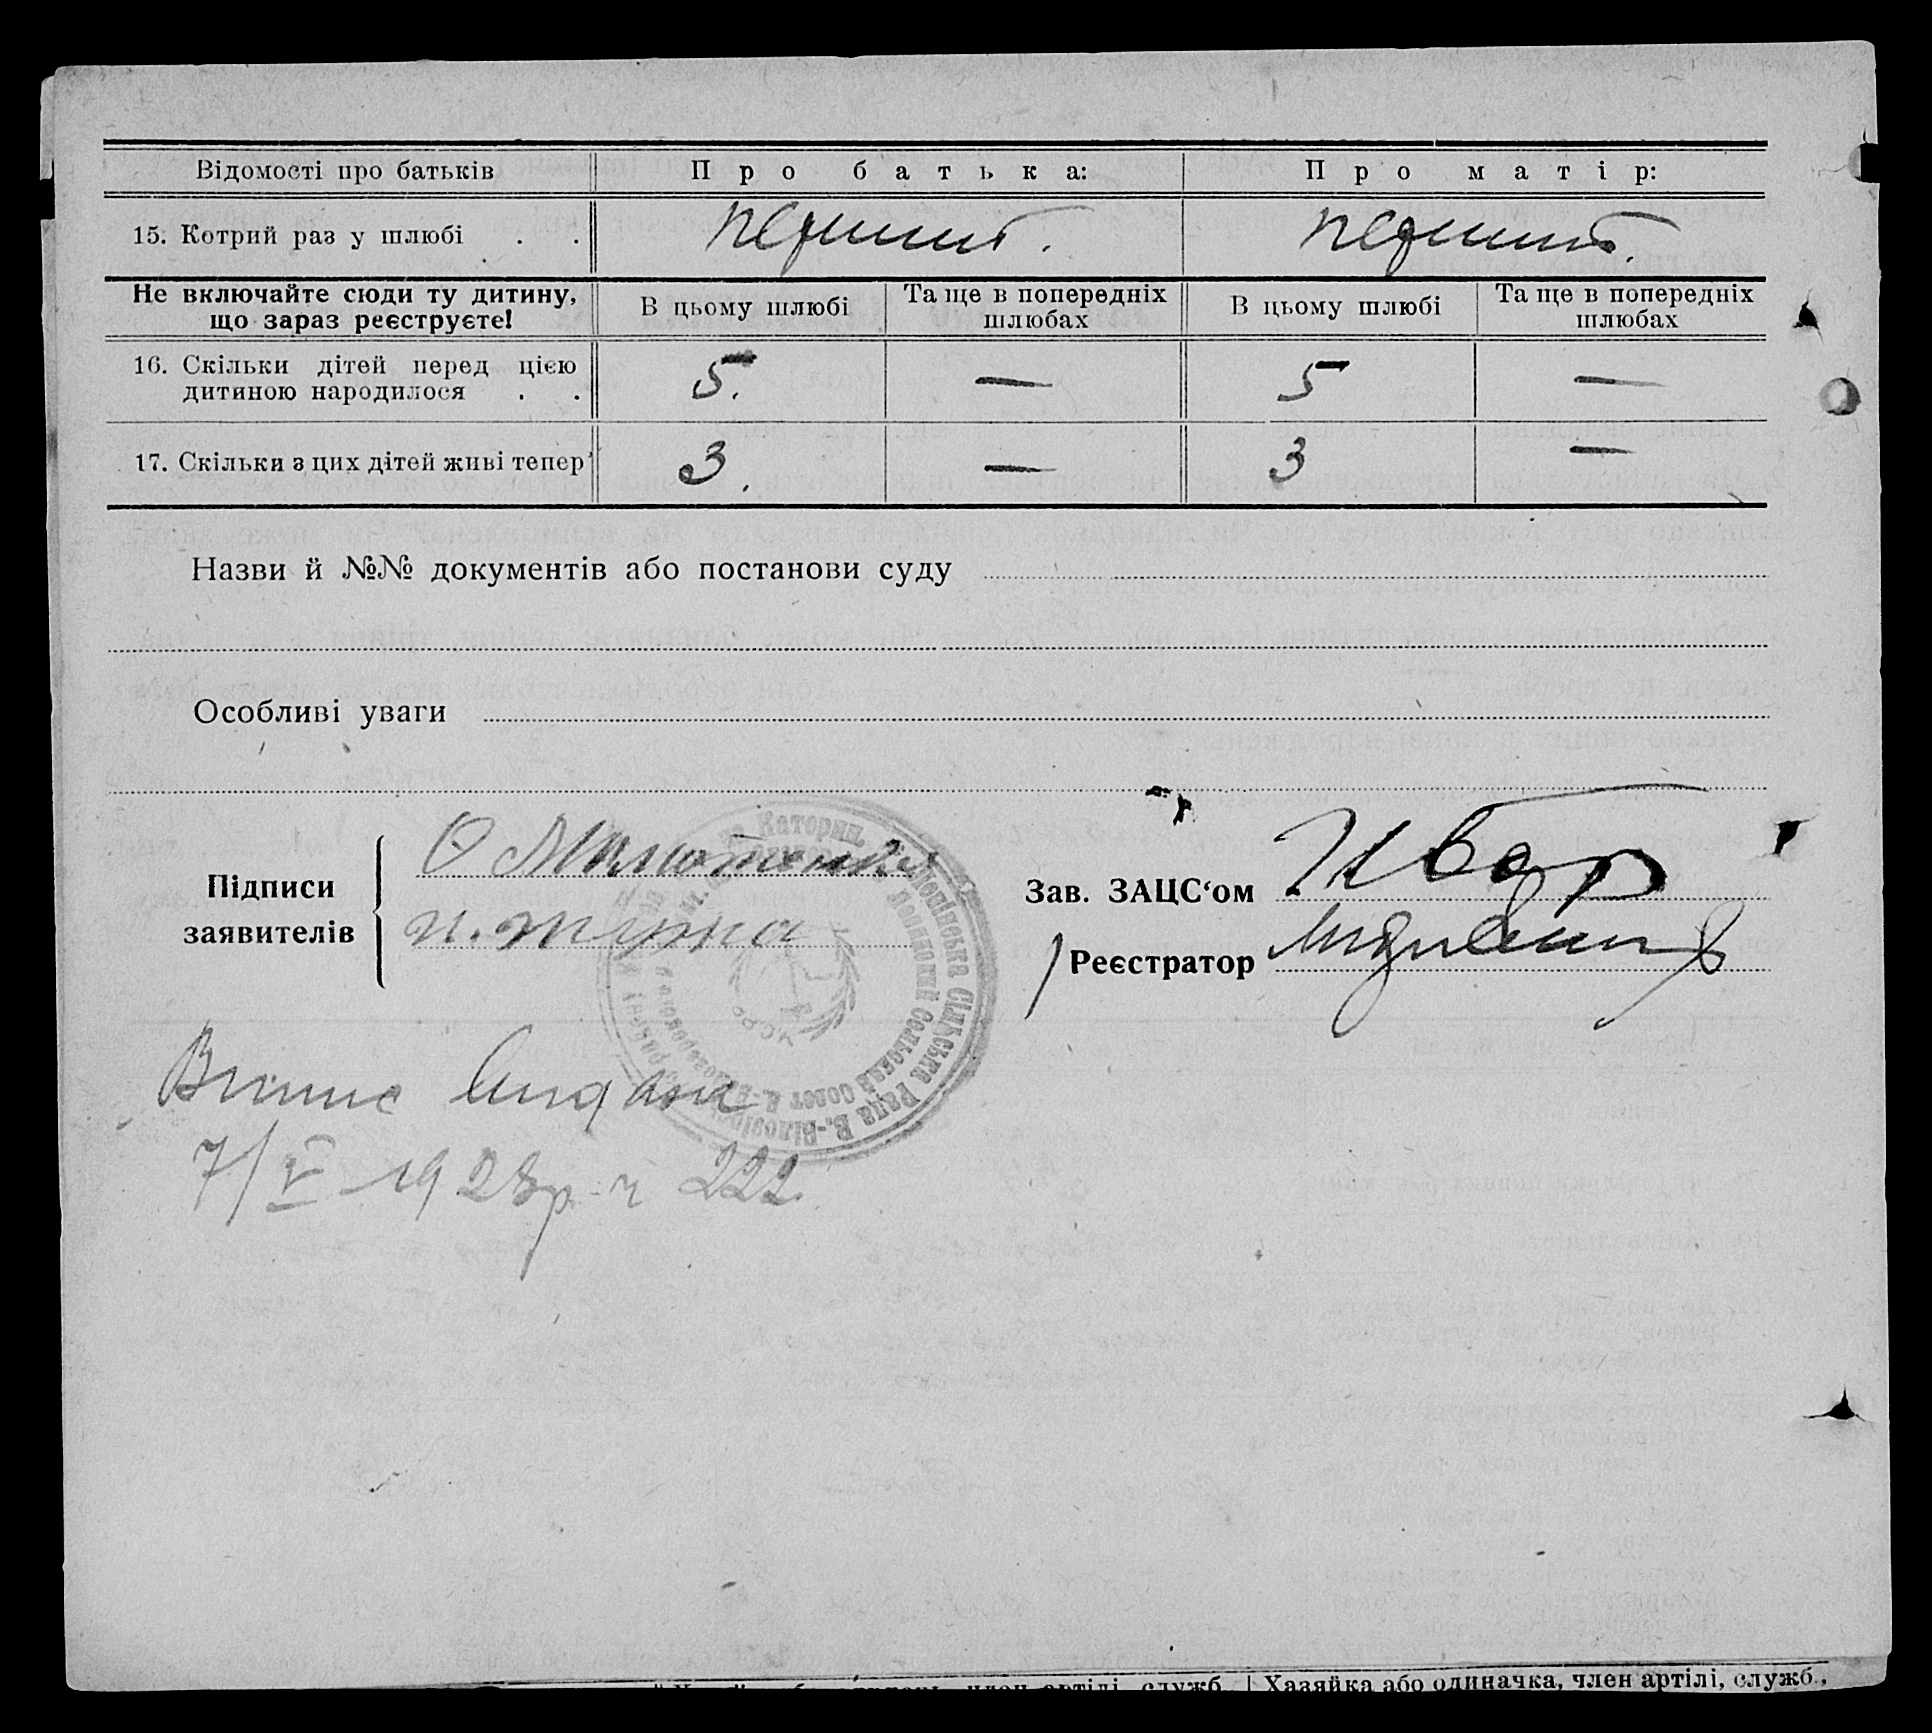 Відомості про батьків Про батька: Про матір:
15. Котрий раз у шлюбі . . перший. перший.
Не включайте сюди ту дитину, що зараз реєструєте! В цьому шлюбі Та ще в попередніх шлюбах В цьому шлюбі Та ще в попередніх шлюбах
16. Скільки дітей перед цією
дитиною народилося . . 5. — 5 —
17. Скільки з цих дітей живі тепер 3. — 3 —
Назви й №№ документів або постанови суду
Особливі уваги
Підписи
заявителів
Зав. ЗАЦС‘ом
Реєстратор
Сільська Рада В.-Білозірс
7/V 1928р. ч 222.
член артілі, служб. Хазяйка або одиначка, член артілі, служб.,